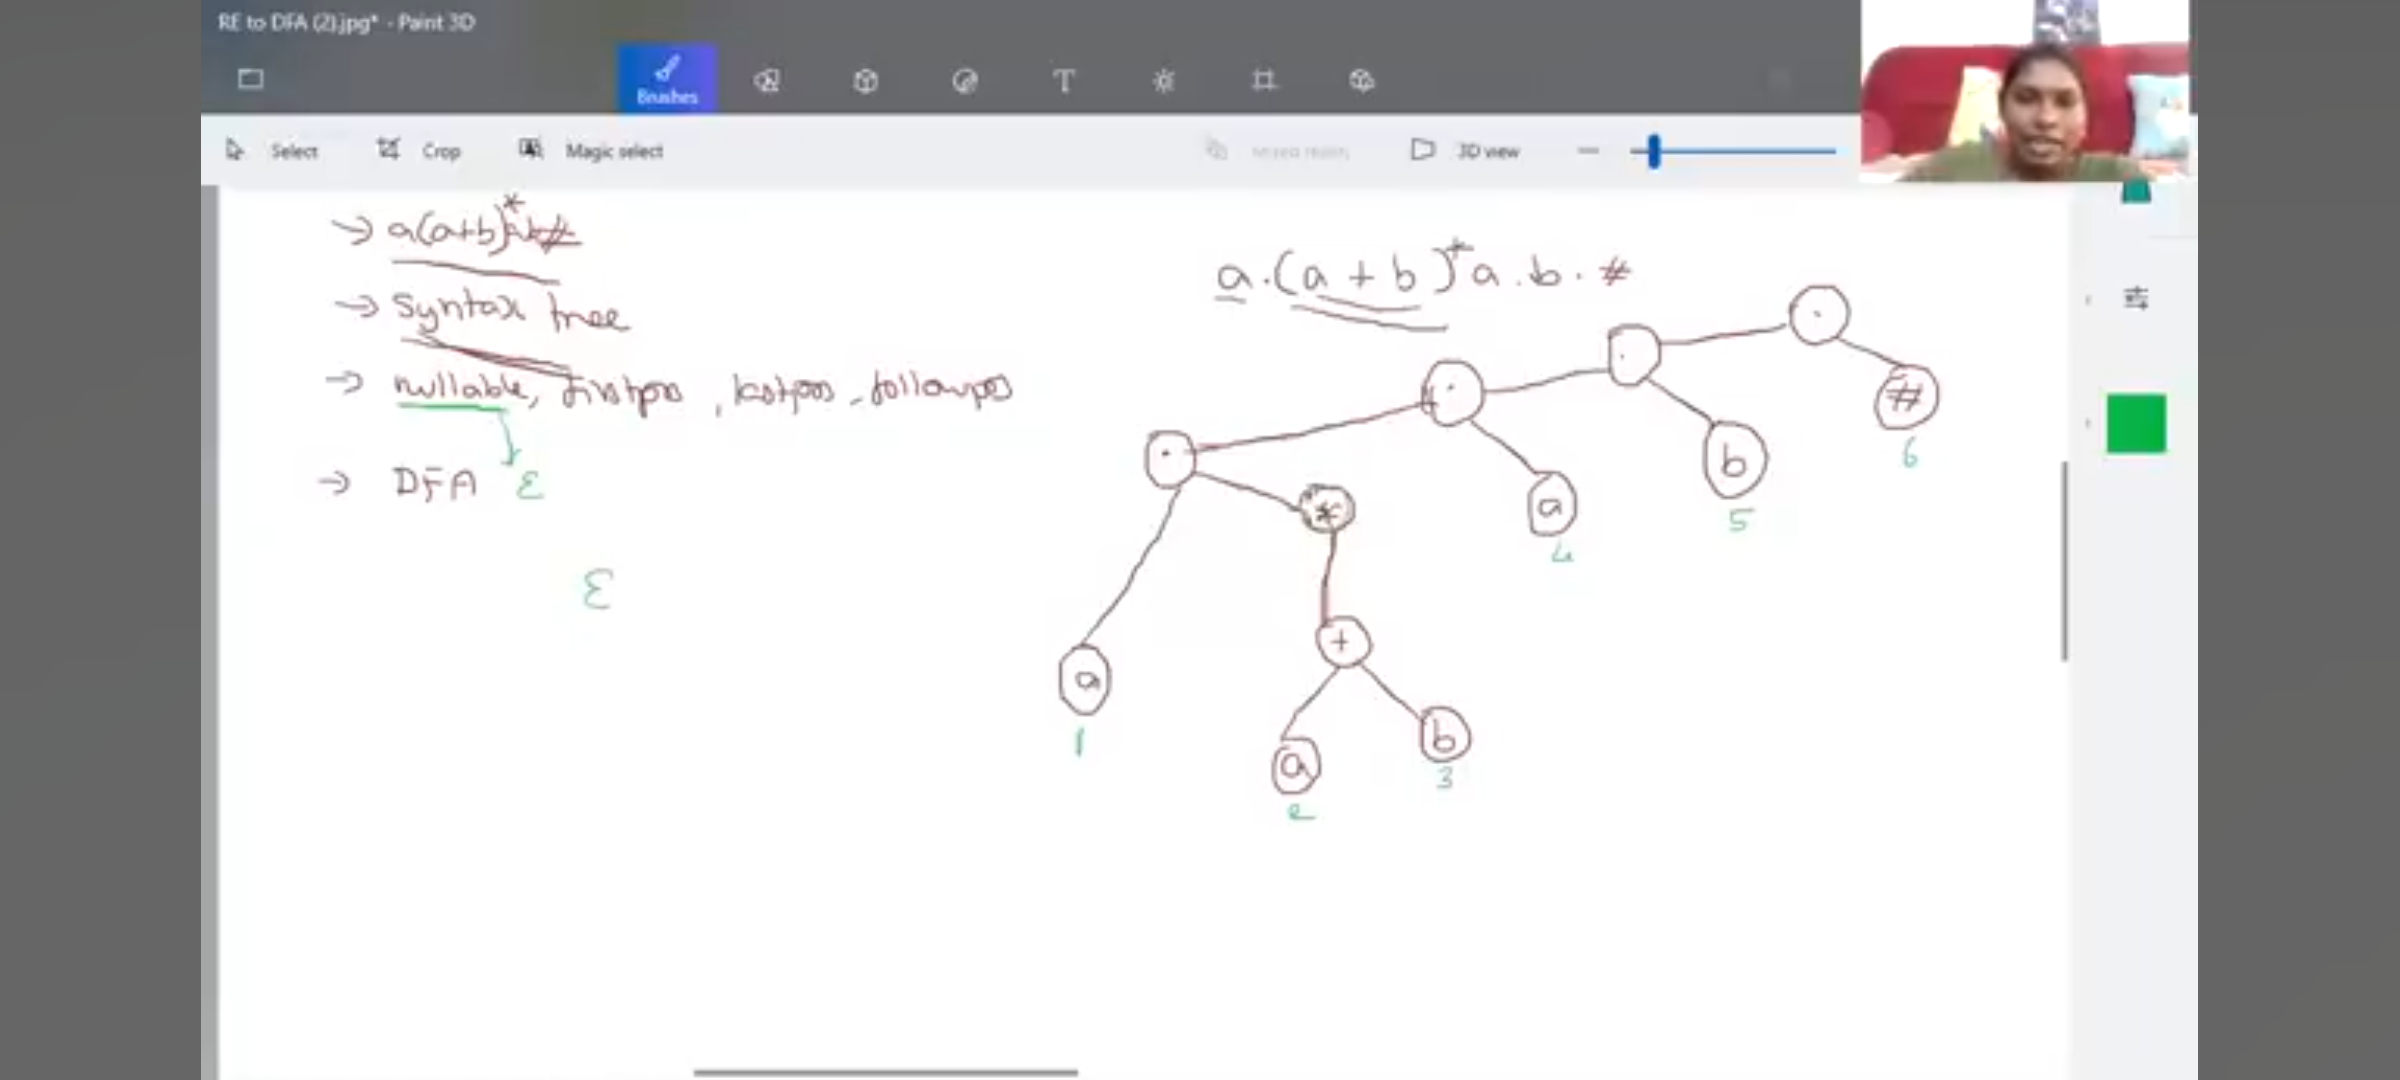 RE to DFA (2).jpg* - Paint 3D
Brushes
Select Crop Magic select Mixed reality 3D view
→ a(a+b)*ab#
→ Syntax tree
→ nullable, firstpos, lastpos, followpos
→ DFA ε
ε
a.(a+b)*a.b.#
.
.
#
6
.
b
5
.
*
a
4
+
a
1
b
3
a
2